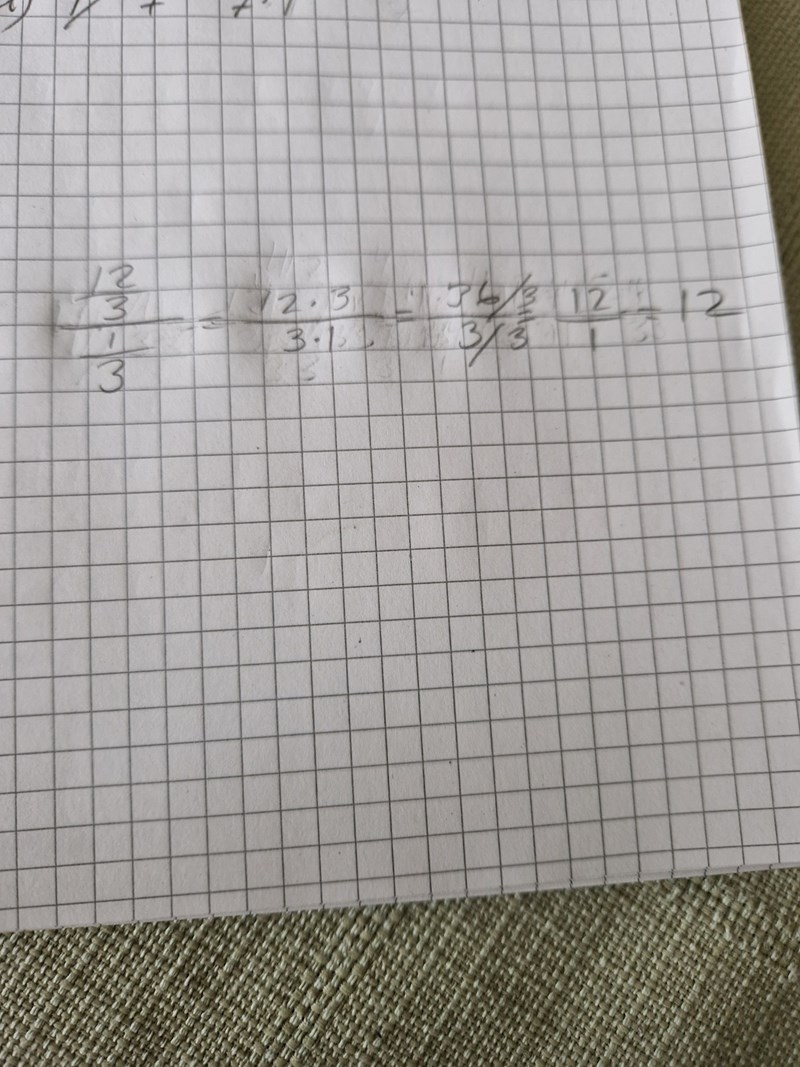 12/3 / 1/3 = 12·3 / 3·1 = 36/3 / 3/3 = 12 / 1 = 12